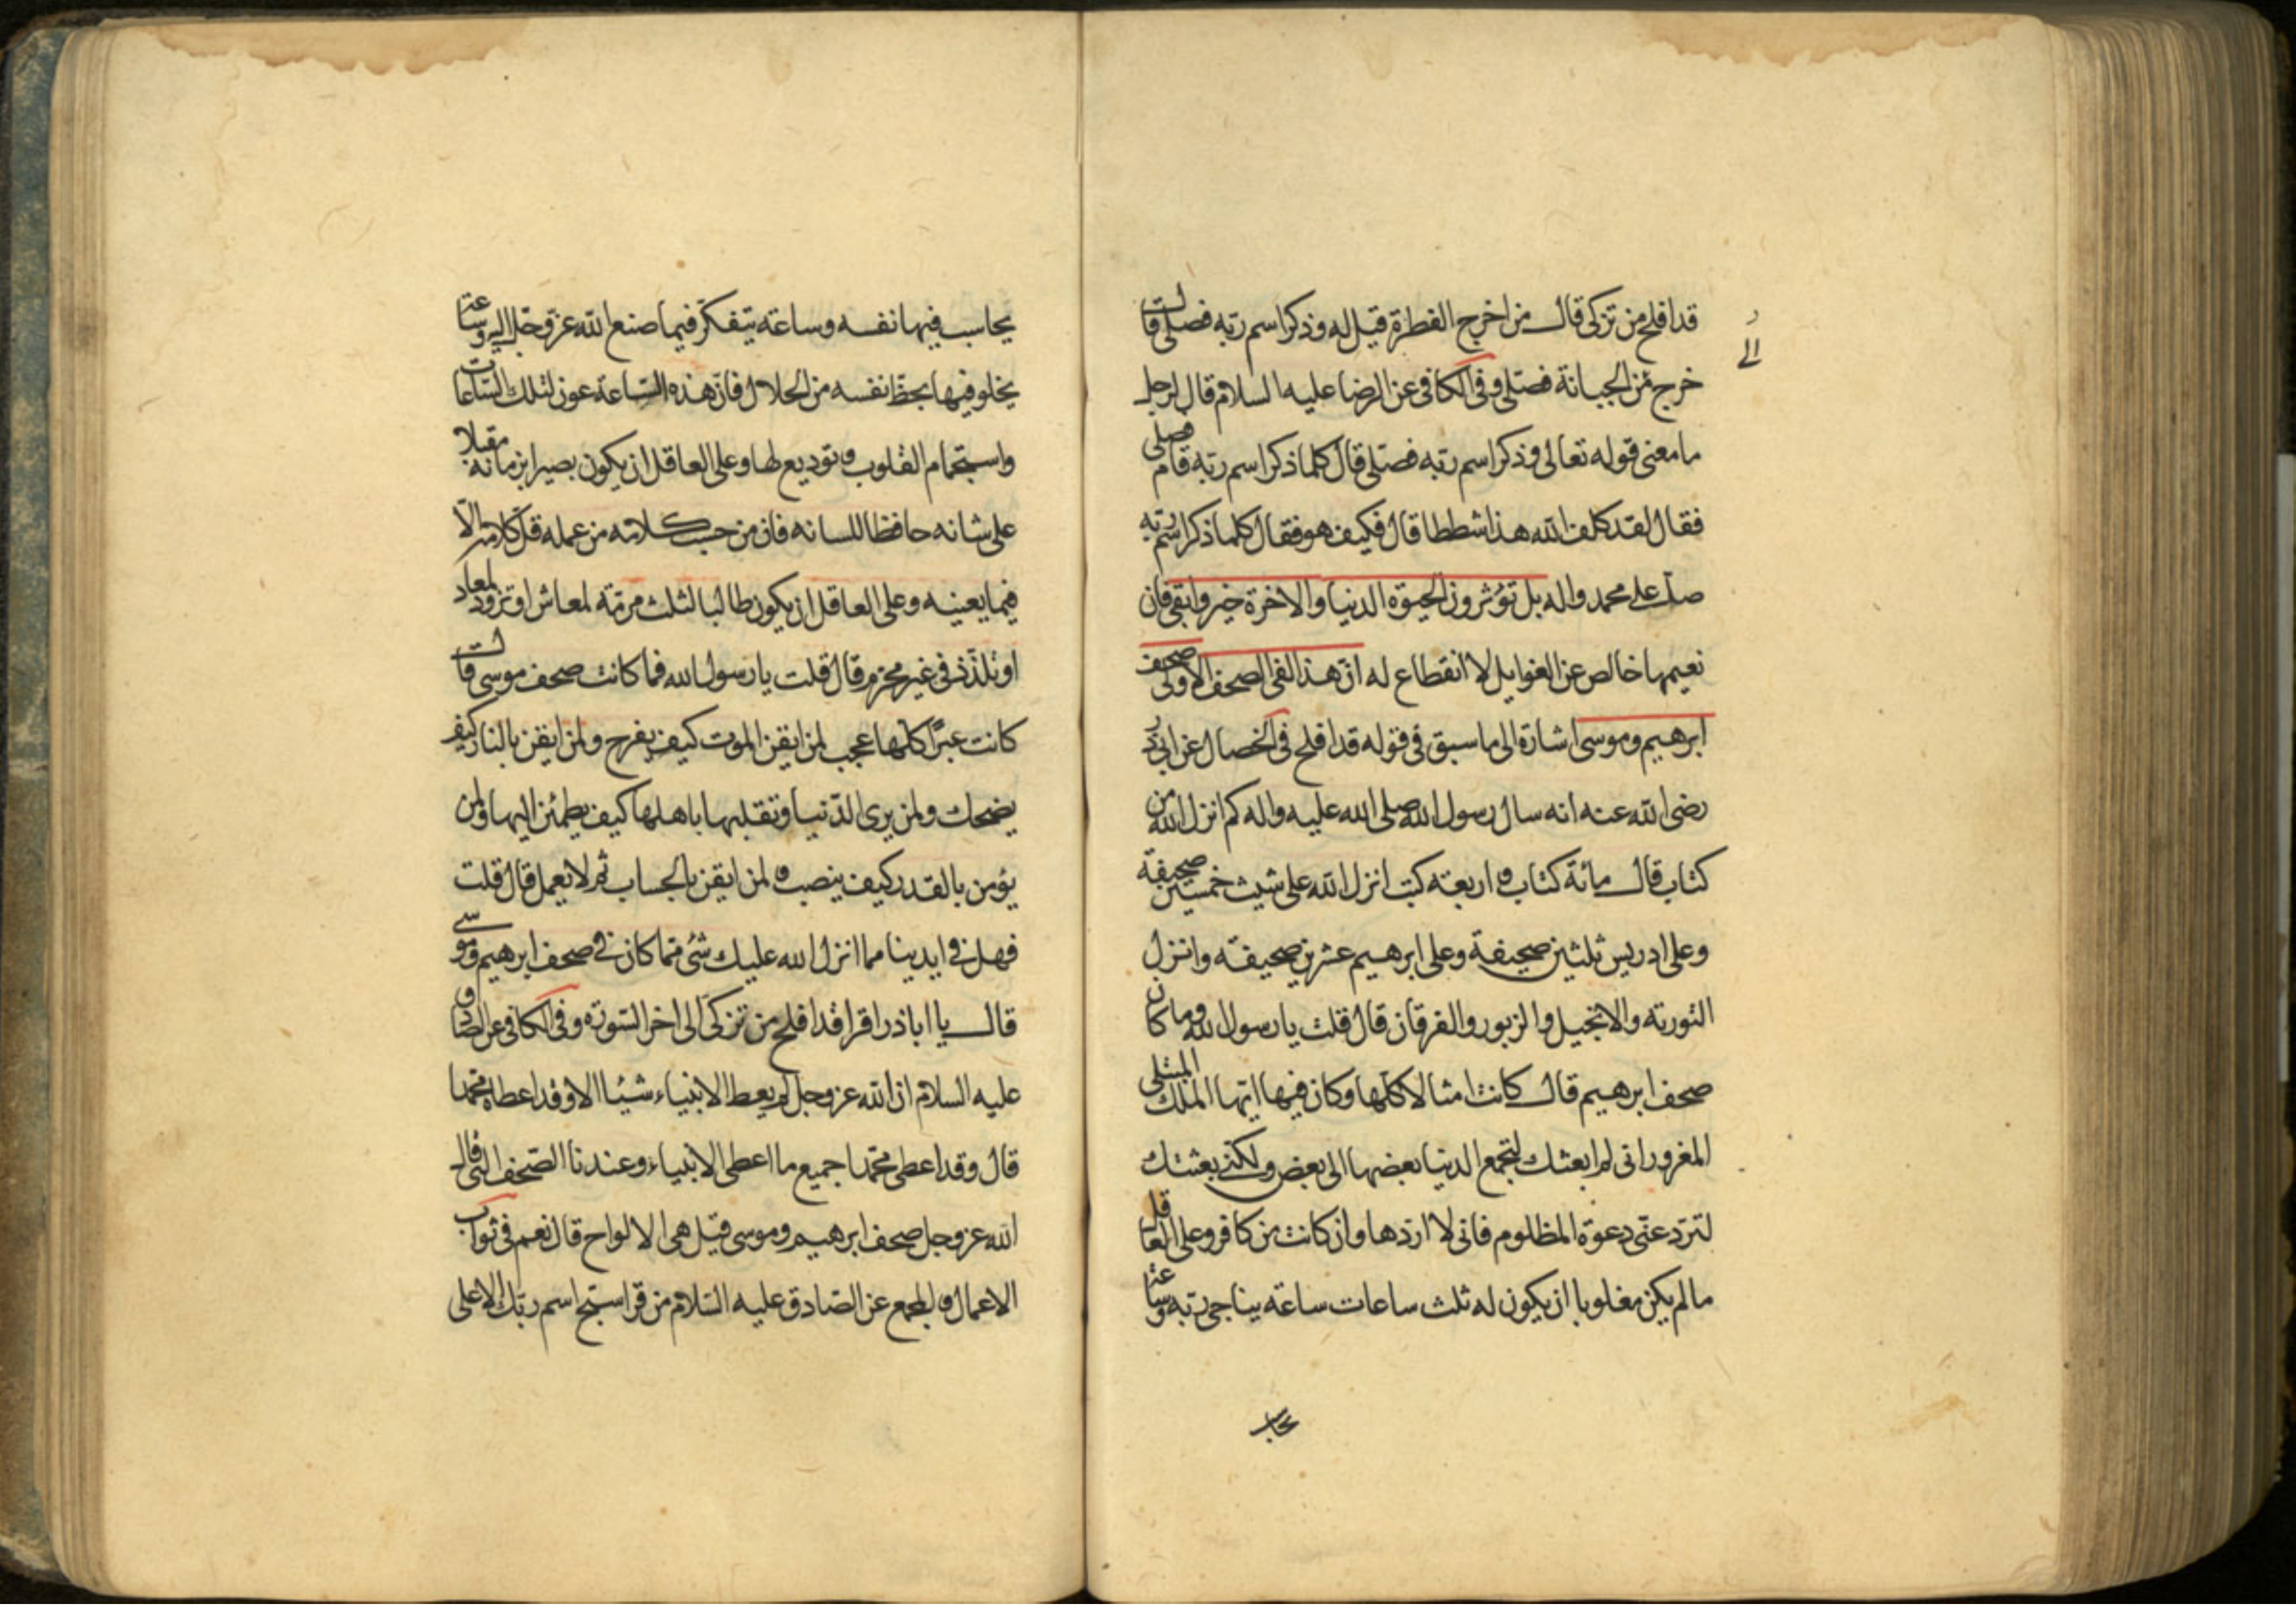 قد افلح من تزكى قال من اخرج الفطرة قيل له وذكر اسم ربه فصلى قال
الى
خرج من الجبانة فصلى وفى الكافى عن الرضا عليه السلام قال لرجل
ما معنى قوله تعالى وذكر اسم ربه فصلى قال كلما ذكر اسم ربه قام فصلى
فقال لقد كلف الله هذا شططا قال فكيف هو فقال كلما ذكر اسم ربه
صلى على محمد واله بل تؤثرون الحيوة الدنيا والاخرة خير وابقى فان
نعيمها خالص عن الغوايل لا انقطاع له ان هذا لفى الصحف الاولى صحف
ابرهيم وموسى اشارة الى ما سبق فى قوله قد افلح فى الخصال عن ابى ذر
رضى الله عنه انه سال رسول الله صلى الله عليه واله كم انزل الله من
كتاب قال مائة كتاب واربعة كتب انزل الله على شيث خمسين صحيفة
وعلى ادريس ثلثين صحيفة وعلى ابرهيم عشرين صحيفة وانزل
التورية والانجيل والزبور والفرقان قال قلت يا رسول الله وما كان
صحف ابرهيم قال كانت امثالا كلها وكان فيها ايها الملك المبتلى
المغرور انى لم ابعثك لتجمع الدنيا بعضها الى بعض ولكنى بعثتك
لترد عنى دعوة المظلوم فانى لا اردها وان كانت من كافر وعلى العاقل
ما لم يكن مغلوبا ان يكون له ثلث ساعات ساعة يناجى ربه وساعة
يحاسب
يحاسب فيها نفسه وساعة يتفكر فيما صنع الله عز وجل اليه وساعة
يخلو فيها بحظ نفسه من الحلال فان هذه الساعة عون لتلك الساعات
واستجمام القلوب وتوديع لها وعلى العاقل ان يكون بصيرا بزمانه مقبلا
على شانه حافظا للسانه فان من حسب كلامه من عمله قل كلامه الا
فيما يعنيه وعلى العاقل ان يكون طالبا لثلث مرمة لمعاش او تزود لمعاد
او تلذذ فى غير محرم قال قلت يا رسول الله فما كانت صحف موسى قال
كانت عبرا كلها عجب لمن ايقن الموت كيف يفرح ولمن ايقن بالنار كيف
يضحك ولمن يرى الدنيا وتقلبها باهلها كيف يطمئن اليها ولمن
يؤمن بالقدر كيف ينصب ولمن ايقن بالحساب ثم لا يعمل قال قلت
فهل فى ايدينا مما انزل الله عليك شئ مما كان فى صحف ابرهيم وموسى
قال يا اباذر اقرا قد افلح من تزكى الى اخر السورة وفى الكافى عن الصادق
عليه السلام ان الله عز وجل لم يعط الانبياء شيئا الا وقد اعطاه محمدا
قال وقد اعطى محمدا جميع ما اعطى الانبياء وعندنا الصحف التى قال
الله عز وجل صحف ابرهيم وموسى قيل هى الالواح قال نعم فى ثواب
الاعمال والمجمع عن الصادق عليه السلام من قرا سبح اسم ربك الاعلى